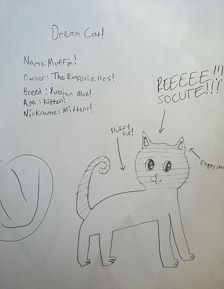 Dream Cat!
Name: Muffin!
Owner: The Rusoniellos!
Breed: Russian Blue!
Age: Kitten!
Nickname: Mittens!
REEEEE!!!
SOCUTE!!!
Fluffy